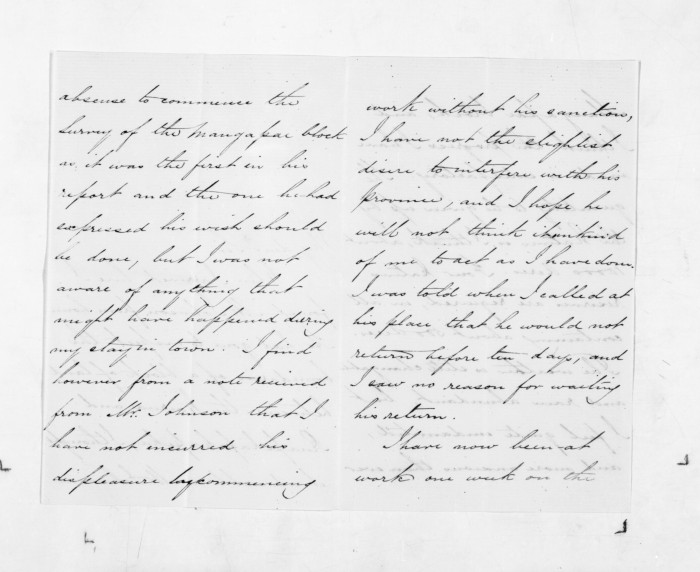 absense to commence the
Survey of the Mangapae block
as it was the first in his
report and the one he had
expressed his wish should
be done, but I was not
aware of anything that
might have happened during
my stay in town. I find
however from a note received
from Mr. Johnson that I
have not incurred his
displeasure by commencing
work without his sanction,
I have not the slightist
disire to interfere with his
province, and I hope he
will not think it unkind
of me to act as I have done.
I was told when I called at
his place that he would not
return before ten days, and
I saw no reason for waiting
his return.
I have now been at
work one week on the